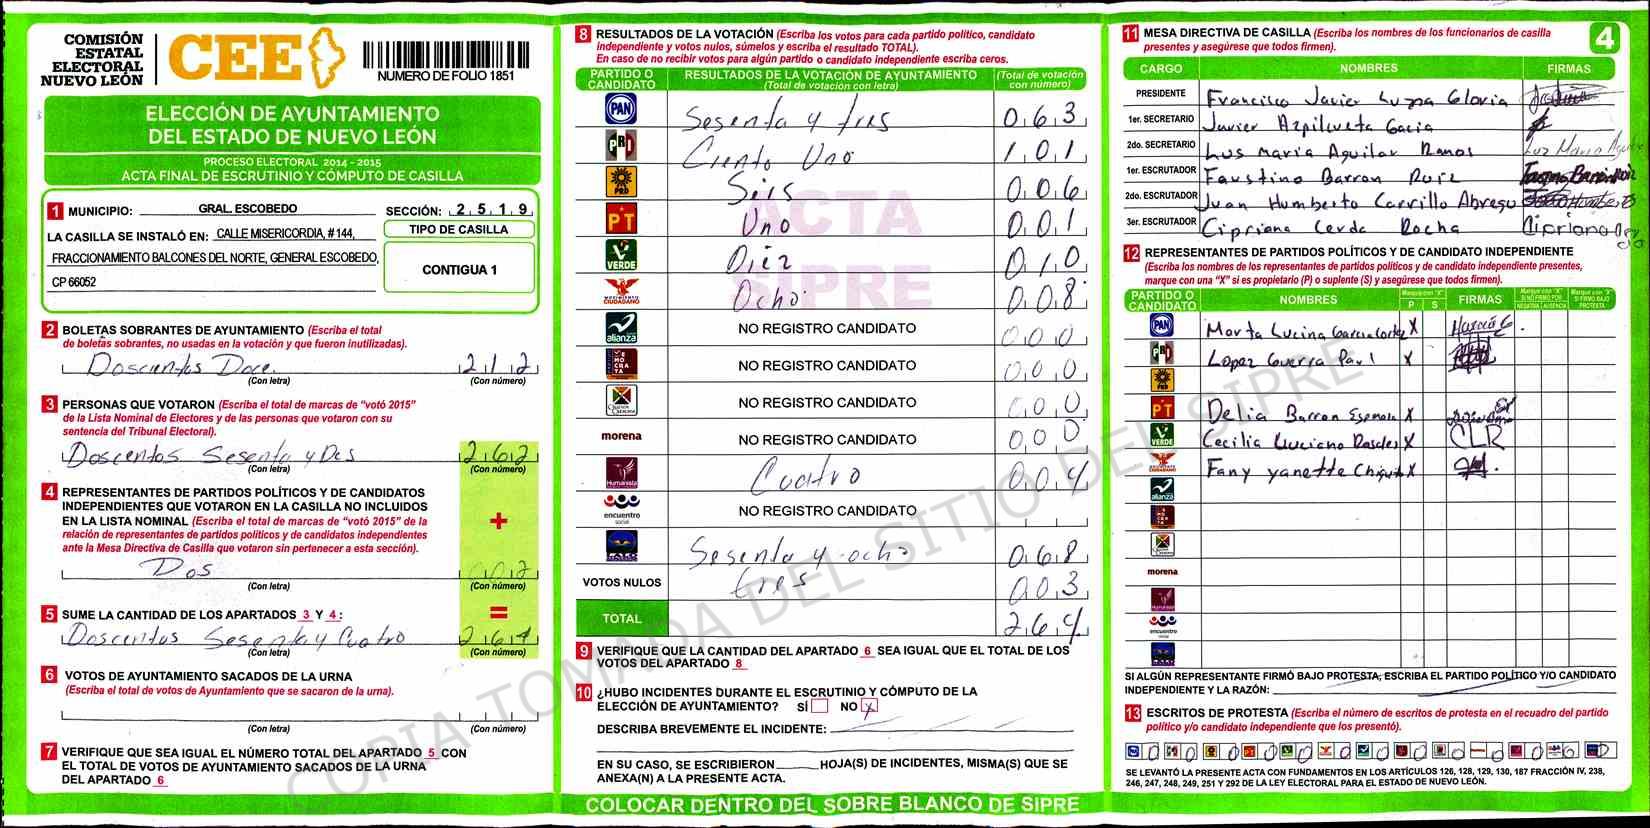 COMISIÓN
ESTATAL
ELECTORAL
NUEVO LEÓN
CEE
NUMERO DE FOLIO 1851
ELECCIÓN DE AYUNTAMIENTO
DEL ESTADO DE NUEVO LEÓN
PROCESO ELECTORAL 2014 - 2015
ACTA FINAL DE ESCRUTINIO Y CÓMPUTO DE CASILLA
1 MUNICIPIO: GRAL. ESCOBEDO SECCIÓN: 2,5,1,9
LA CASILLA SE INSTALÓ EN: CALLE MISERICORDIA, # 144,
FRACCIONAMIENTO BALCONES DEL NORTE, GENERAL ESCOBEDO,
CP 66052
TIPO DE CASILLA
CONTIGUA 1
2 BOLETAS SOBRANTES DE AYUNTAMIENTO (Escriba el total
de boletas sobrantes, no usadas en la votación y que fueron inutilizadas).
Doscientos Doce. 2 1 2
(Con letra) (Con número)
3 PERSONAS QUE VOTARON (Escriba el total de marcas de "votó 2015"
de la Lista Nominal de Electores y de las personas que votaron con su
sentencia del Tribunal Electoral).
Doscentos Sesenta y Dos 2 6 2
(Con letra) (Con número)
4 REPRESENTANTES DE PARTIDOS POLÍTICOS Y DE CANDIDATOS
INDEPENDIENTES QUE VOTARON EN LA CASILLA NO INCLUIDOS
EN LA LISTA NOMINAL (Escriba el total de marcas de "votó 2015" de la
relación de representantes de partidos políticos y de candidatos independientes
ante la Mesa Directiva de Casilla que votaron sin pertenecer a esta sección).
+
Dos 0 0 2
(Con letra) (Con número)
5 SUME LA CANTIDAD DE LOS APARTADOS 3 Y 4: =
Doscentos Sesenta y Cuatro 2 6 4
(Con letra) (Con número)
6 VOTOS DE AYUNTAMIENTO SACADOS DE LA URNA
(Escriba el total de votos de Ayuntamiento que se sacaron de la urna).
(Con letra) (Con número)
7 VERIFIQUE QUE SEA IGUAL EL NÚMERO TOTAL DEL APARTADO 5 CON
EL TOTAL DE VOTOS DE AYUNTAMIENTO SACADOS DE LA URNA
DEL APARTADO 6
8 RESULTADOS DE LA VOTACIÓN (Escriba los votos para cada partido político, candidato
independiente y votos nulos, súmelos y escriba el resultado TOTAL).
En caso de no recibir votos para algún partido o candidato independiente escriba ceros.
PARTIDO O CANDIDATO RESULTADOS DE LA VOTACIÓN DE AYUNTAMIENTO (Total de votación con letra) (Total de votación con número)
PAN Sesenta y tres 0 6 3
PRI Ciento Uno 1 0 1
PRD Seis 0 0 6
PT Uno 0 0 1
VERDE Diez 0 1 0
MOVIMIENTO CIUDADANO Ocho 0 0 8
alianza NO REGISTRO CANDIDATO 0 0 0
DEMOCRATA NO REGISTRO CANDIDATO 0 0 0
NO REGISTRO CANDIDATO 0 0 0
morena NO REGISTRO CANDIDATO 0 0 0
Humanista Cuatro 0 0 4
encuentro social NO REGISTRO CANDIDATO
Sesenta y ocho 0 6 8
VOTOS NULOS tres 0 0 3
TOTAL 2 6 4
ACTA
SIPRE
COPIA TOMADA DEL SITIO DEL SIPRE
9 VERIFIQUE QUE LA CANTIDAD DEL APARTADO 6 SEA IGUAL QUE EL TOTAL DE LOS
VOTOS DEL APARTADO 8
10 ¿HUBO INCIDENTES DURANTE EL ESCRUTINIO Y CÓMPUTO DE LA
ELECCIÓN DE AYUNTAMIENTO? SÍ NO X
DESCRIBA BREVEMENTE EL INCIDENTE:
EN SU CASO, SE ESCRIBIERON HOJA(S) DE INCIDENTES, MISMA(S) QUE SE
ANEXA(N) A LA PRESENTE ACTA.
COLOCAR DENTRO DEL SOBRE BLANCO DE SIPRE
11 MESA DIRECTIVA DE CASILLA (Escriba los nombres de los funcionarios de casilla
presentes y asegúrese que todos firmen).
4
CARGO NOMBRES FIRMAS
PRESIDENTE Francisco Javier Luna Gloria
1er. SECRETARIO Javier Azpilcueta Gacia
2do. SECRETARIO Lus Maria Aguilar Ramos Luz Maria
1er. ESCRUTADOR Faustino Barron Ruiz
2do. ESCRUTADOR Juan Humberto Carrillo Abrego
3er. ESCRUTADOR Cipriana Cerda Rocha Cipriana
12 REPRESENTANTES DE PARTIDOS POLÍTICOS Y DE CANDIDATO INDEPENDIENTE
(Escriba los nombres de los representantes de partidos políticos y de candidato independiente presentes,
marque con una "X" si es propietario (P) o suplente (S) y asegúrese que todos firmen).
PARTIDO O CANDIDATO NOMBRES Marque con "X" P S FIRMAS Marque con "X" SI NO FIRMÓ POR NEGATIVA AUSENCIA Marque con "X" SI FIRMÓ BAJO PROTESTA
PAN Marta Lucina Garcia Cortez X
PRI Lopez Guerra Paul X
PRD
PT Delia Barron X
VERDE Cecilia Luciano Rosales X CLR
Fany Yanette X
alianza
morena
encuentro
SI ALGÚN REPRESENTANTE FIRMÓ BAJO PROTESTA, ESCRIBA EL PARTIDO POLÍTICO Y/O CANDIDATO
INDEPENDIENTE Y LA RAZÓN:
13 ESCRITOS DE PROTESTA (Escriba el número de escritos de protesta en el recuadro del partido
político y/o candidato independiente que los presentó).
0 0 0 0 0 0 0 0 0 0 0 0 0
SE LEVANTÓ LA PRESENTE ACTA CON FUNDAMENTOS EN LOS ARTÍCULOS 126, 128, 129, 130, 187 FRACCIÓN IV, 238,
246, 247, 248, 249, 251 Y 292 DE LA LEY ELECTORAL PARA EL ESTADO DE NUEVO LEÓN.